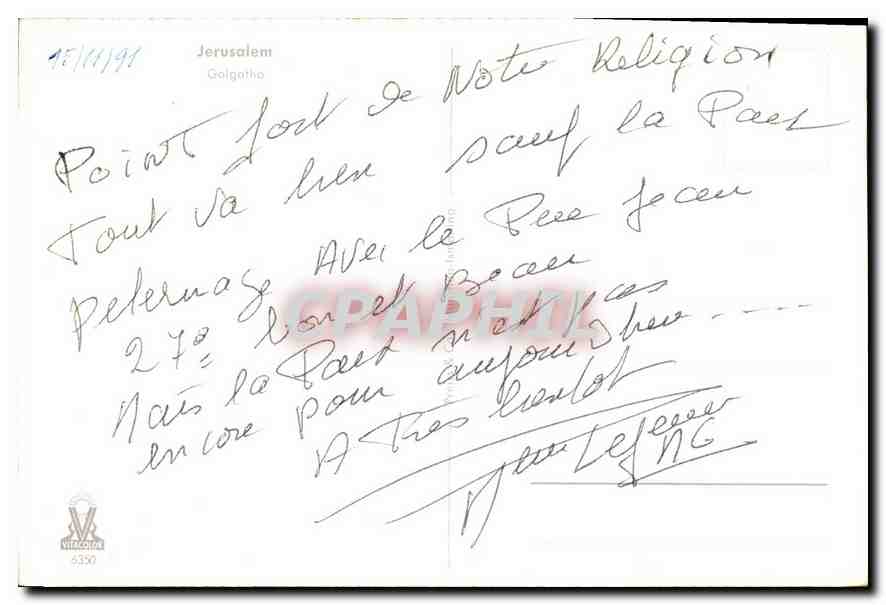 15/11/91
Jerusalem
Golgotha
Point fort de Notre Religion
Tout va bien sauf la Paix
Pelerinage Avec le Pere Jean
27° bon et Beau
Mais la Paix n'est pas
encore pour aujourd'hui - - - -
A Tres bientot
CPAPHIL
VITACOLOR
6350